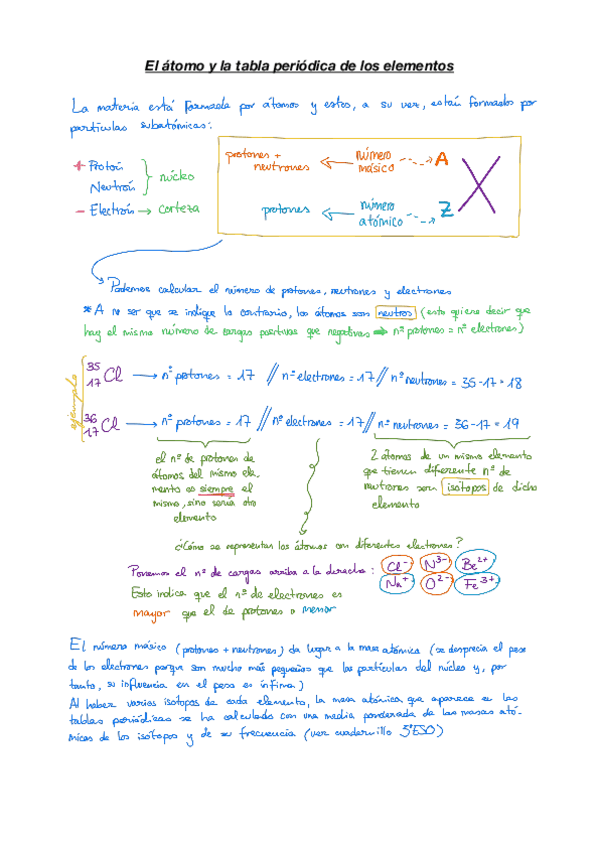 El átomo y la tabla periódica de los elementos
La materia está formada por átomos y estos, a su vez, están formados por
partículas subatómicas:
+ Protón
Neutrón
núcleo
- Electrón → corteza
protones +
neutrones
número
másico
A
X
protones
número
atómico
Z
Podemos calcular el número de protones, neutrones y electrones
* A no ser que se indique lo contrario, los átomos son neutros (esto quiere decir que
hay el mismo número de cargas positivas que negativas → nº protones = nº electrones)
ejemplo
35
17 Cl → nº protones = 17 // nº electrones = 17 // nº neutrones = 35-17 = 18
36
17 Cl → nº protones = 17 // nº electrones = 17 // nº neutrones = 36-17 = 19
el nº de protones de
átomos del mismo ele-
mento es siempre el
mismo, sino sería otro
elemento
2 átomos de un mismo elemento
que tienen diferente nº de
neutrones son isótopos de dicho
elemento
¿Cómo se representan los átomos con diferentes electrones?
Ponemos el nº de cargas arriba a la derecha: Cl⁻ N³⁻ Be²⁺
Na⁺ O²⁻ Fe³⁺
Esto indica que el nº de electrones es
mayor que el de protones o menor
El número másico (protones + neutrones) da lugar a la masa atómica (se desprecia el peso
de los electrones porque son mucho más pequeños que las partículas del núcleo y, por
tanto, su influencia en el peso es ínfima.)
Al haber varios isótopos de cada elemento, la masa atómica que aparece en las
tablas periódicas se ha calculado con una media ponderada de las masas ató-
micas de los isótopos y de su frecuencia (ver cuadernillo 3ºESO)